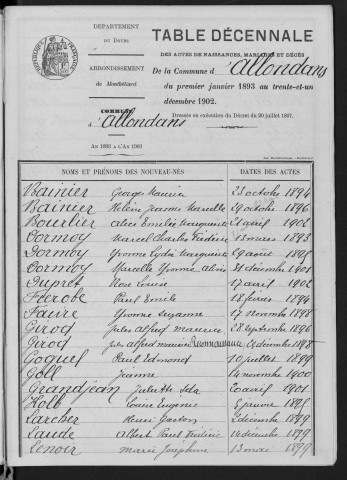 DÉPARTEMENT
DU DOUBS
ARRONDISSEMENT
DE Montbéliard
COMMUNE
d'Allondans
AN 1893 A L'AN 1903
TABLE DÉCENNALE
DES ACTES DE NAISSANCES, MARIAGES ET DÉCÈS
De la Commune d'Allondans
du premier janvier 1893 au trente-et-un
décembre 1902.
Dressée en exécution du Décret du 20 juillet 1807.
NOMS ET PRÉNOMS DES NOUVEAU-NÉS DATES DES ACTES
Bainier Georges Maurice 23 octobre 1894
Bainier Hélène Jeanne Marcelle 29 octobre 1896
Bourlier Alice Emilie Marguerite 21 avril 1902
Dormoy Marcel Charles Frédéric 13 mars 1893
Dormoy Yvonne Lydie Marguerite 29 août 1895
Dormoy Marcelle Yvonne 31 décembre 1901
Dupret Rose Louise 17 avril 1902
Paul Emile 18 février 1894
Faivre Yvonne Suzanne 17 novembre 1898
Girod Jules Alfred Maurice 28 septembre 1896
Girod Jules Alfred Maurice Reconnaissance 1898
Goguel Paul Edmond 10 juillet 1899
Goll Jeanne 14 novembre 1900
Grandjean Juliette Ida 20 avril 1901
Koll Louise Eugénie janvier
Larcher Henri Gaston 2 décembre 1899
Laude Albert Paul Frédéric 14 décembre 1899
Lenoir Marie Joséphine 13 mai 1899